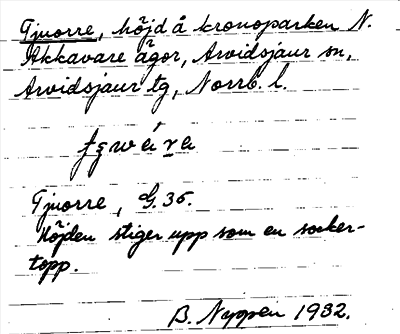 Tjuorre, höjd å kronoparken N.
Akkavare ägor, Arvidsjaur sn,
Arvidsjaur tg, Norrb. l.
Tjuorre, G. 35.
Höjden stiger upp som en socker-
topp.
B. Nyppen 1932.